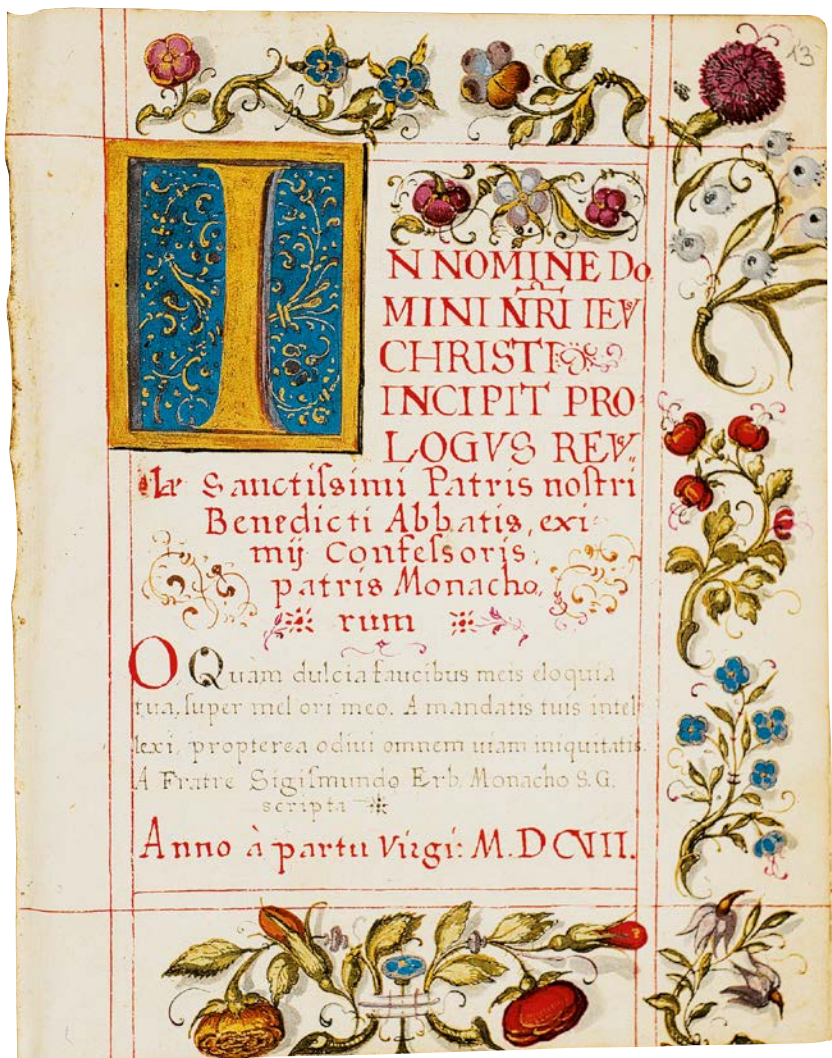 13
IN NOMINE DO
MINI NR̃I IEV
CHRISTI
INCIPIT PRO
LOGVS REV
læ Sanctiſsimi Patris noſtri
Benedicti Abbatis, exi
mij Confeſsoris,
patris Monacho,
rum
O Quàm dulcia faucibus meis eloquia
tua, ſuper mel ori meo. A mandatis tuis intel
lexi, propterea odiui omnem uiam iniquitatis.
A Fratre Sigiſmundo Erb, Monacho S. G.
scripta
Anno à partu Virgi: M.DCVII.